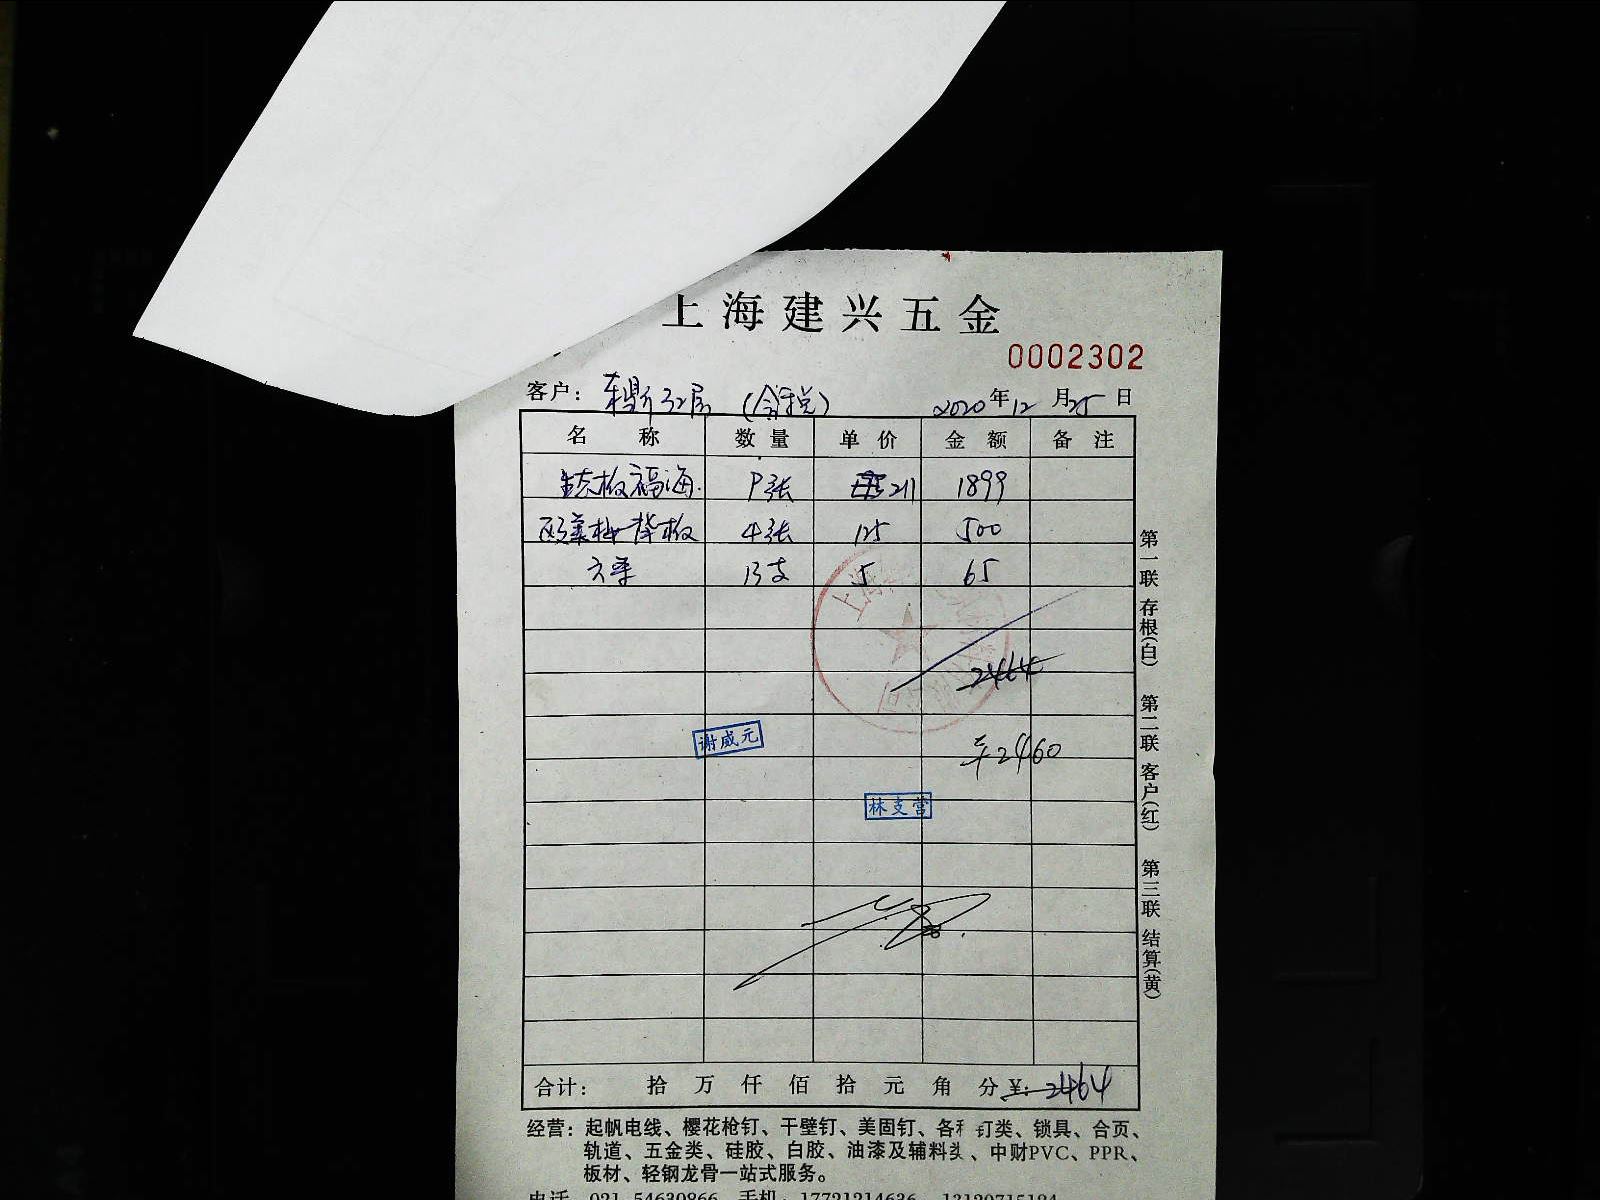 上海建兴五金
0002302
客户: 东鼎32层 (含税) 2020年12月25日
名称 数量 单价 金额 备注
生态板福海 9张 211 1899
欧莱 4张 125 500
方 13支 5 65
2464
谢威元
2460
林支营
合计: 拾 万 仟 佰 拾 元 角 分 ¥: 2464
第一联 存根(白) 第二联 客户(红) 第三联 结算(黄)
经营: 起帆电线、樱花枪钉、干壁钉、美固钉、各种钉类、锁具、合页、
轨道、五金类、硅胶、白胶、油漆及辅料类、中财PVC、PPR、
板材、轻钢龙骨一站式服务。
电话 021-54630866 手机: 17721214636